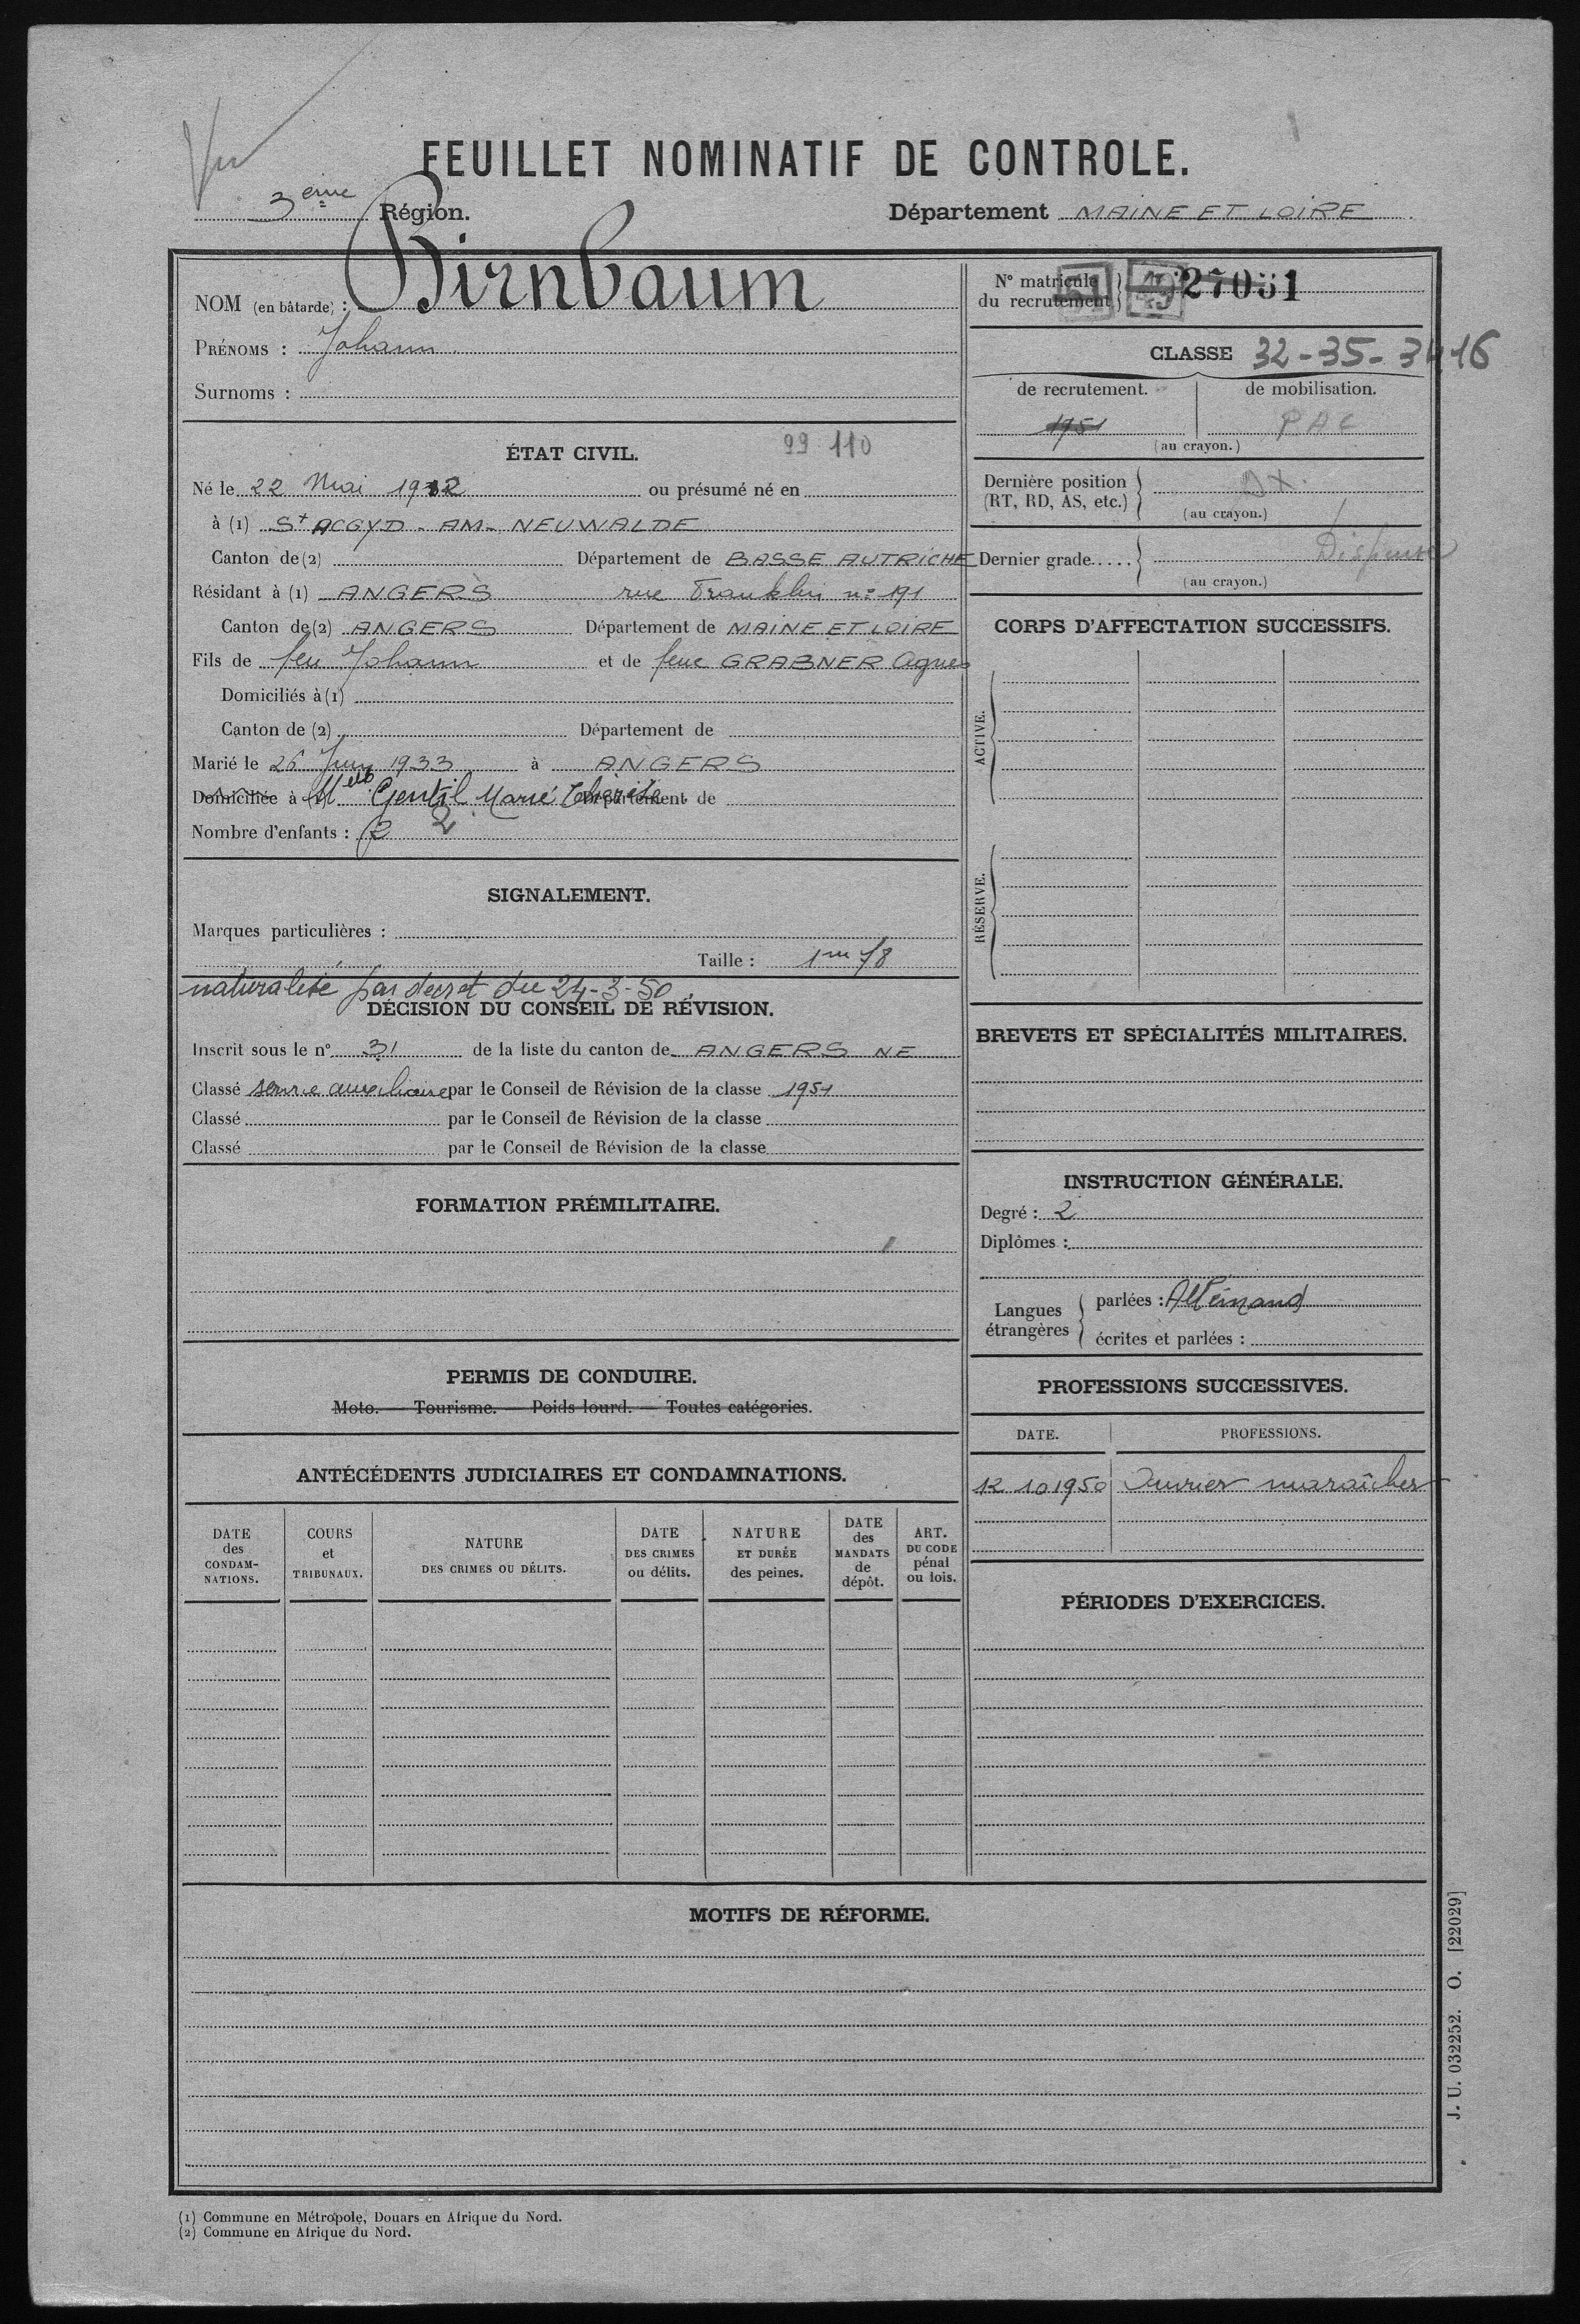 Vu
FEUILLET NOMINATIF DE CONTROLE.
3ème Région.
Département MAINE ET LOIRE
NOM (en bâtarde) : Birnbaum
PRÉNOMS : Johann
Surnoms :
ÉTAT CIVIL.
99 110
Né le 22 Mai 1912 ou présumé né en
à (1) St ACGYD - AM - NEUWALDE
Canton de (2) Département de BASSE AUTRICHE
Résidant à (1) ANGERS rue Franklin n° 191
Canton de (2) ANGERS Département de MAINE ET LOIRE
Fils de feu Johann et de feue GRABNER Agnes
Domiciliés à (1)
Canton de (2) Département de
Marié le 26 Juin 1933 à ANGERS
Domiciliée à Melle Gentil Marie Thérèse Département de
Nombre d'enfants : 2 2
SIGNALEMENT.
Marques particulières :
Taille : 1m 78
naturalisé par decret du 24-3-50
DÉCISION DU CONSEIL DE RÉVISION.
Inscrit sous le n° 31 de la liste du canton de ANGERS NE
Classé service auxiliaire par le Conseil de Révision de la classe 1951
Classé par le Conseil de Révision de la classe
Classé par le Conseil de Révision de la classe
FORMATION PRÉMILITAIRE.
PERMIS DE CONDUIRE.
Moto. — Tourisme. — Poids lourd. — Toutes catégories.
ANTÉCÉDENTS JUDICIAIRES ET CONDAMNATIONS.
DATE des CONDAMNATIONS.
COURS et TRIBUNAUX.
NATURE DES CRIMES OU DÉLITS.
DATE DES CRIMES ou délits.
NATURE ET DURÉE des peines.
DATE des MANDATS de dépôt.
ART. DU CODE pénal ou lois.
N° matricule du recrutement 51 49 27051
CLASSE 32-35-3416
de recrutement. de mobilisation.
1951 PAC
(au crayon.)
Dernière position (RT, RD, AS, etc.) DX.
(au crayon.)
Dernier grade..... Dispensé
(au crayon.)
CORPS D'AFFECTATION SUCCESSIFS.
ACTIVE.
RÉSERVE.
BREVETS ET SPÉCIALITÉS MILITAIRES.
INSTRUCTION GÉNÉRALE.
Degré : 2
Diplômes :
Langues étrangères
parlées : Allemand
écrites et parlées :
PROFESSIONS SUCCESSIVES.
DATE. PROFESSIONS.
12 10 1950 Ouvrier maraîcher
PÉRIODES D'EXERCICES.
MOTIFS DE RÉFORME.
J. U. 032252. O. [22029]
(1) Commune en Métropole, Douars en Afrique du Nord.
(2) Commune en Afrique du Nord.